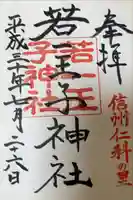 奉拝
信州仁科の里
若一王子神社
若一王
子神社
平成三十年七月二十六日